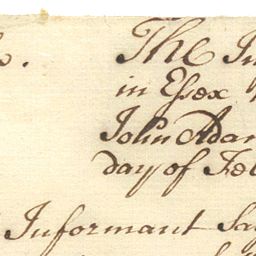 The In
in Eſsex
John Adam
day of Feb
Informant Sa